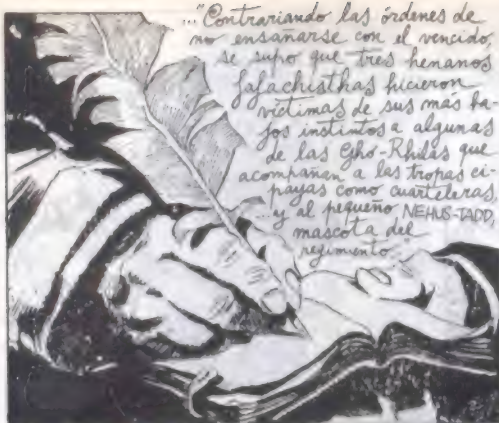 ..."Contrariando las órdenes de
no ensañarse con el vencido,
se supo que tres henanos
fafachisthas hicieron
víctimas de sus más ba
jos instintos a algunas
de las Gho-Rhilas que
acompañan a las tropas ci-
payas como cuarteleras
...y al pequeño NEHUS-TADD,
mascota del
regimiento."